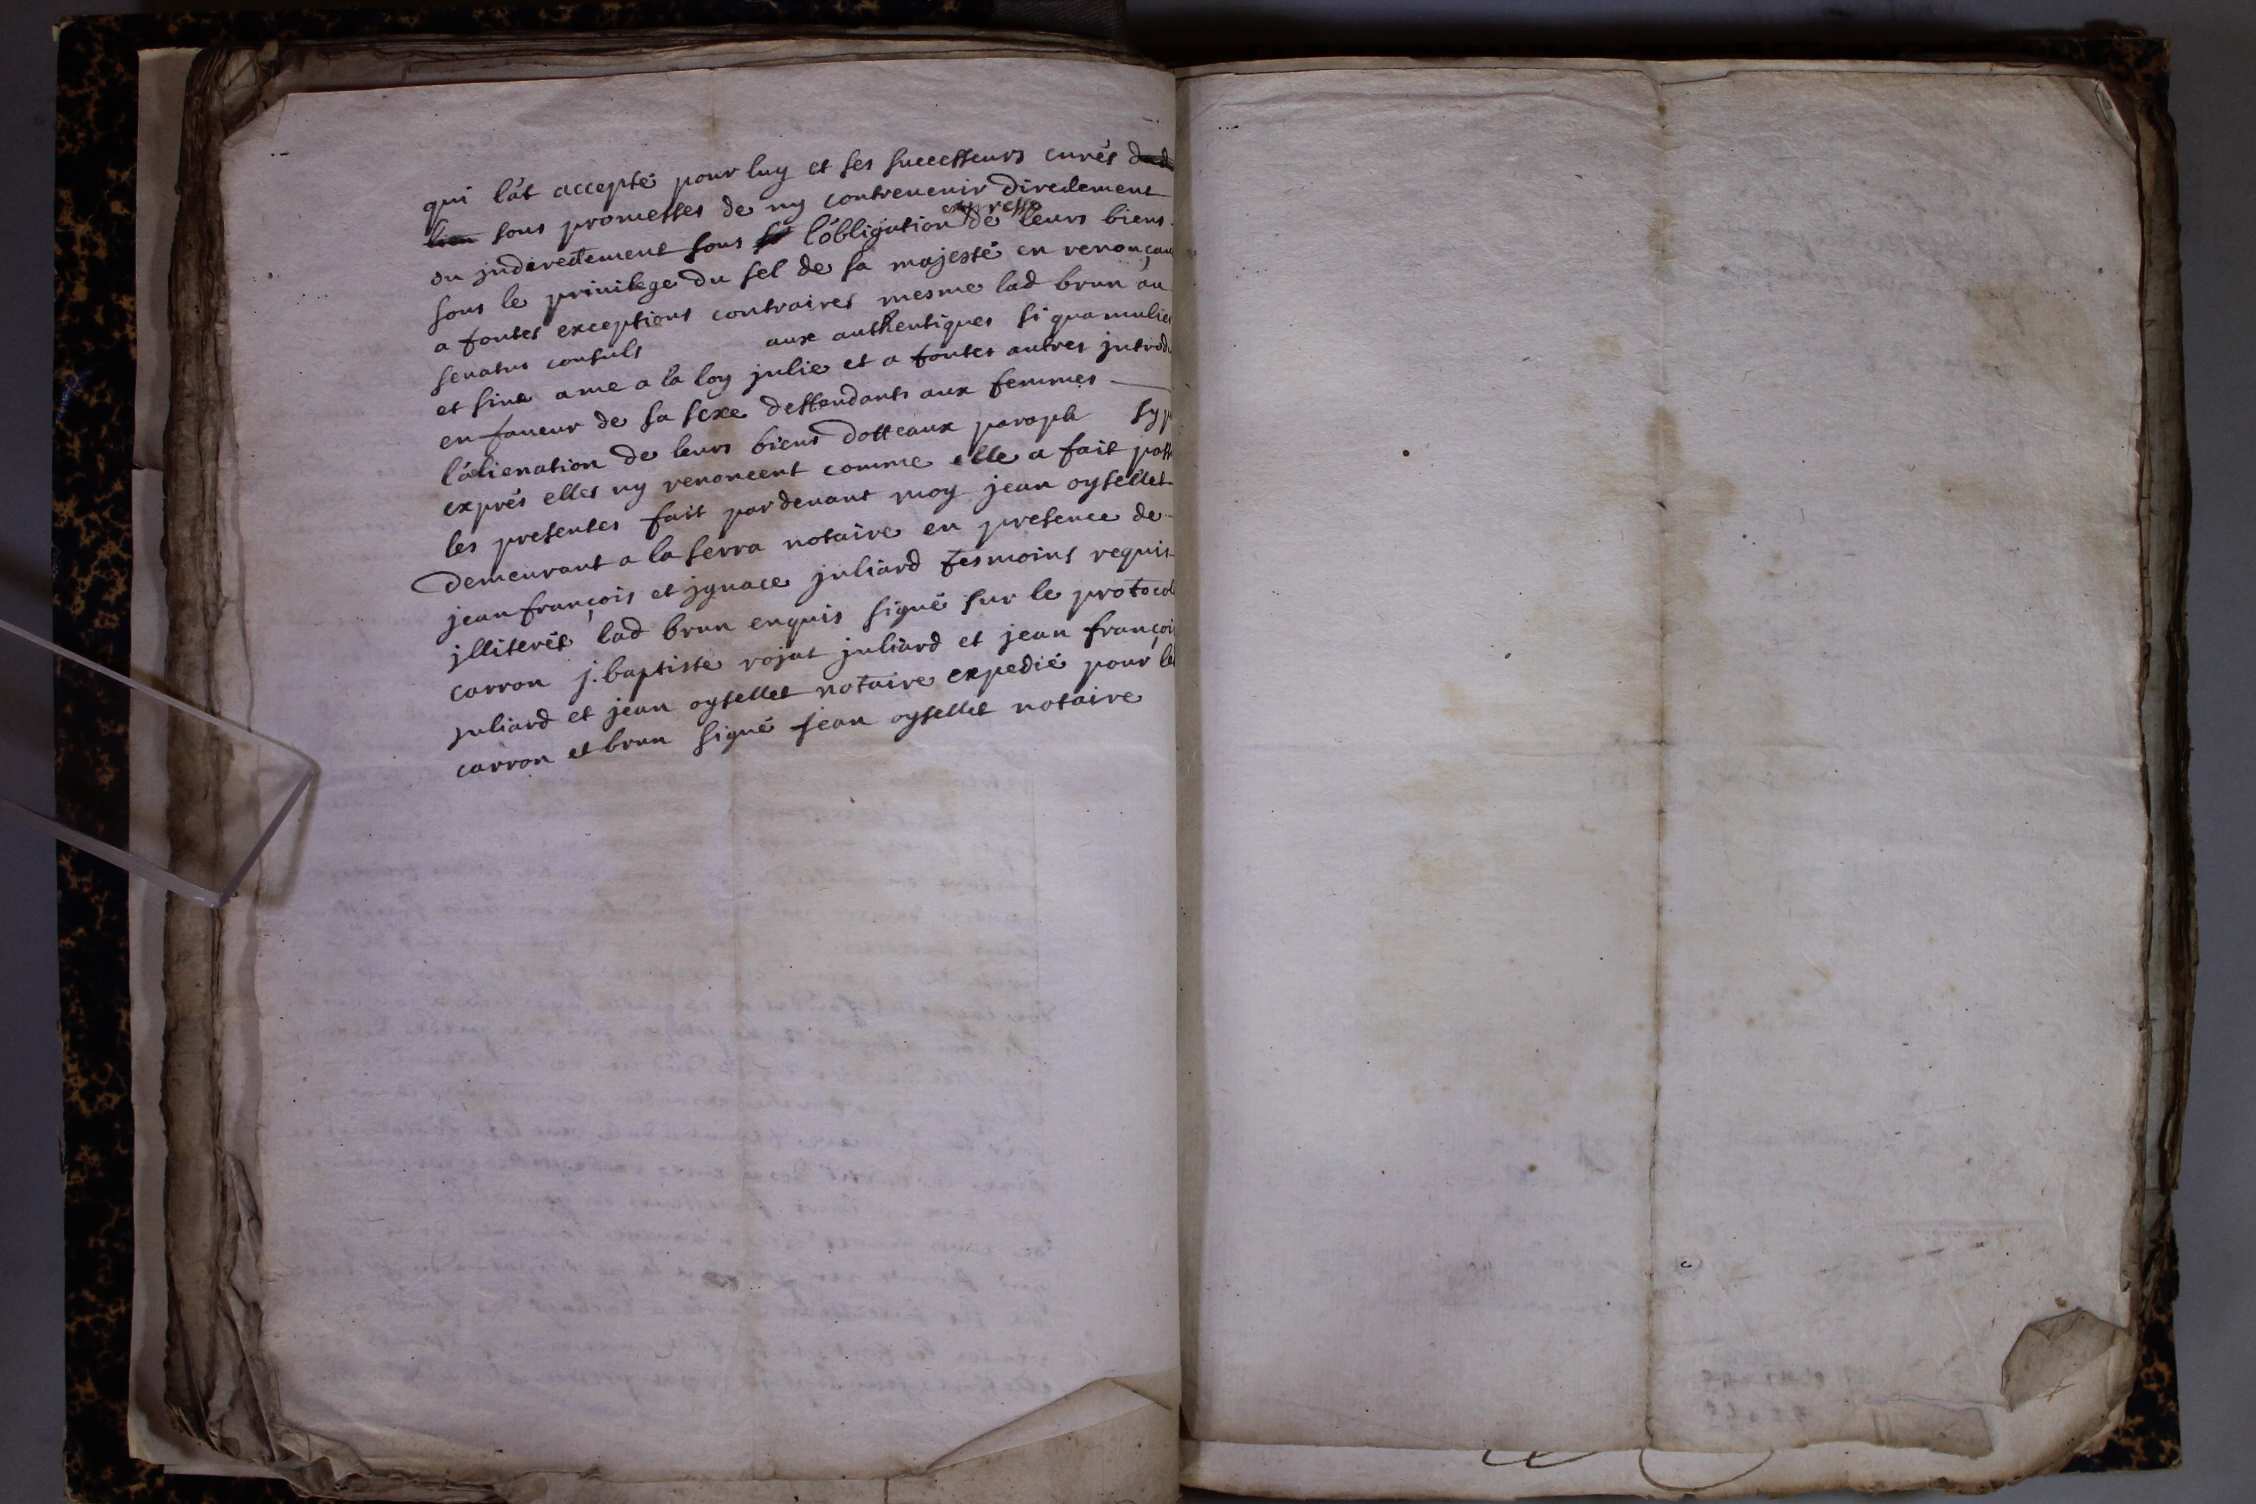 qui lât accepté pour luy et ses successeurs curés dud
lieu sous promesses de ny contrevenir directement
expresse
ou jndirectement sous l'obligation de leurs biens
sous le privilege du sel de sa majesté en renonçan
a toutes exceptions contraires mesme lad brun au
senatus consuls aux authentiques si qua mulie
et sine a me a la loy julie et a toutes autres jntrod
en faveur de sa sexe deffendants aux femmes
l'alienation de leurs biens dotteaux
exprés elles ny renoncent comme elle a fait
les presentes fait pardevant moy jean oysellet
demeurant a la serra notaire en presence de
jean françois et jgnace juliard tesmoins requis
jlliterés lad brun enquis signé sur le protocol
carron j. baptiste rojat juliard et jean françoi
juliard et jean oysellet notaire expedié pour le
carron et brun signé jean oysellet notaire